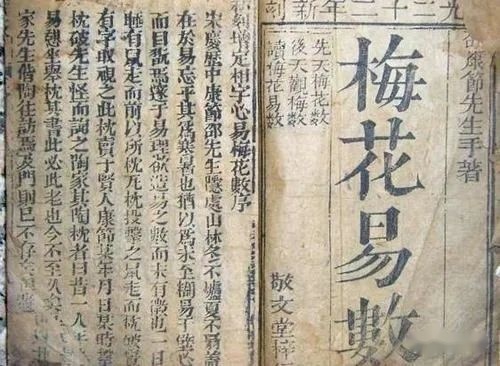 三十二年新刻
康節先生手著
梅花易數
先天梅花數
後天觀梅數
讀梅花易數
敬文堂梓
刻增定相字心易梅花數序
宋慶歷中康節邵先生隱處山林冬不爐夏不扇蓋
在於易忘乎其爲寒暑也猶以爲未至糊易于壁心
目玩焉邃于易理欲造易之數而未有徵也一日
睡有鼠走而前以所枕瓦枕投擊之鼠走而枕破
有字取視之此枕賣于賢人康節某年月日某時擊
枕破先生怪而詢之陶家其陶枕者曰昔一人
易憩坐舉枕其書此必此老也今不至久矣
家先生偕陶往訪焉及門則已不存矣